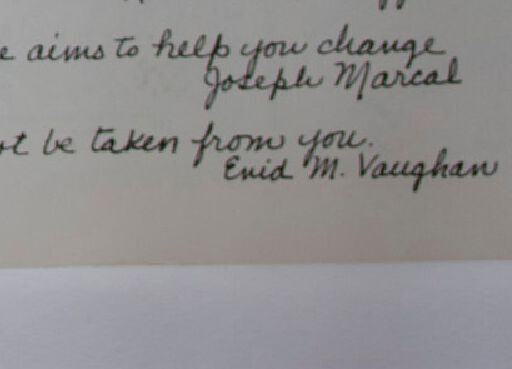 e aims to help you change
Joseph Marcal
ot be taken from you.
Enid M. Vaughan